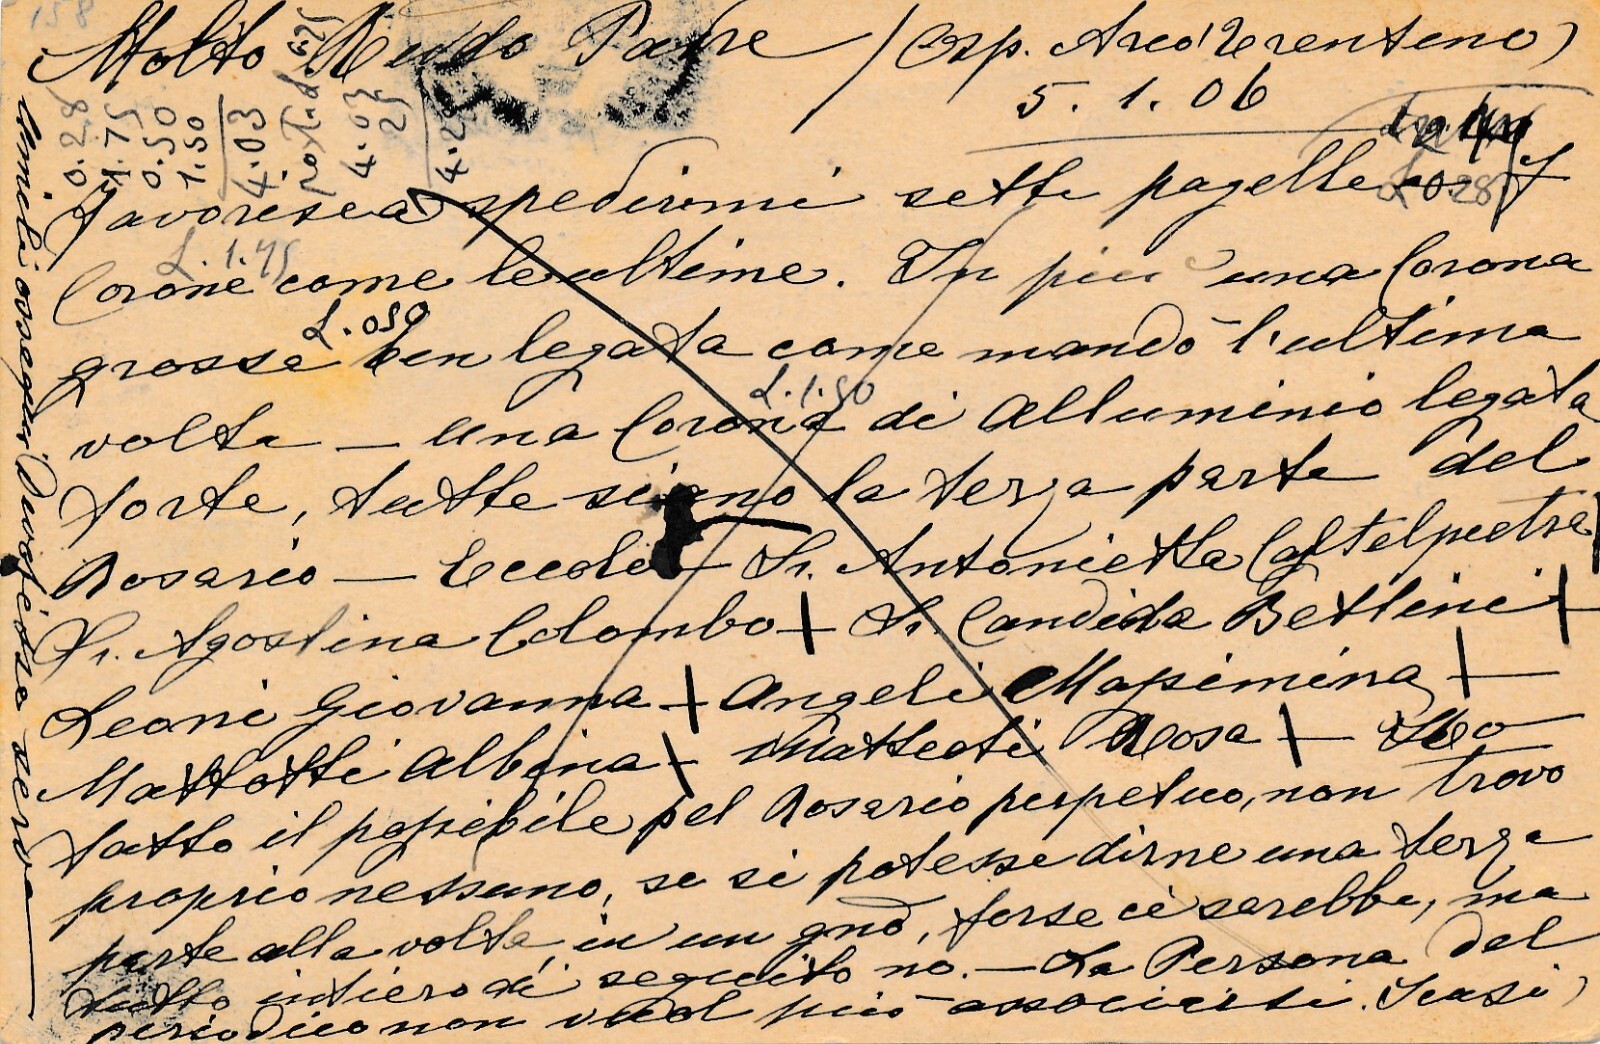 158
Molto Rendo Padre / (Osp. Arco Trentino)
5. 1. 06
0.28
1.75
0.50
1.50
4.03
4.03
25
4.28
L. 0.28
Favorisca spedirmi sette pagelle - 7
L. 1.75
Corone come le ultime. In più una Corona
L. 050
grossa ben legata come mandò l'ultima
L. 1.50
volta - una Corona di Alluminio legata
forte, tutte siano la terza parte del
Rosario - Eccole - Sr. Antonietta Castelpietra
Sr. Agostina Colombo + Sr. Candida Bettini +
Leoni Giovanna + Angeli Massimina +
Mattotti Albina + Matteoti Rosa + - Fo
tutto il possibile pel Rosario perpetuo, non trovo
proprio nessuno, se si potesse dirne una terza
parte alla volta, in un gno, forse ci sarebbe, ma
tutto intiero di seguito no. - La Persona del
periodico non vuol più associarsi. Scusi)
Umili ossequi Devotissa serva